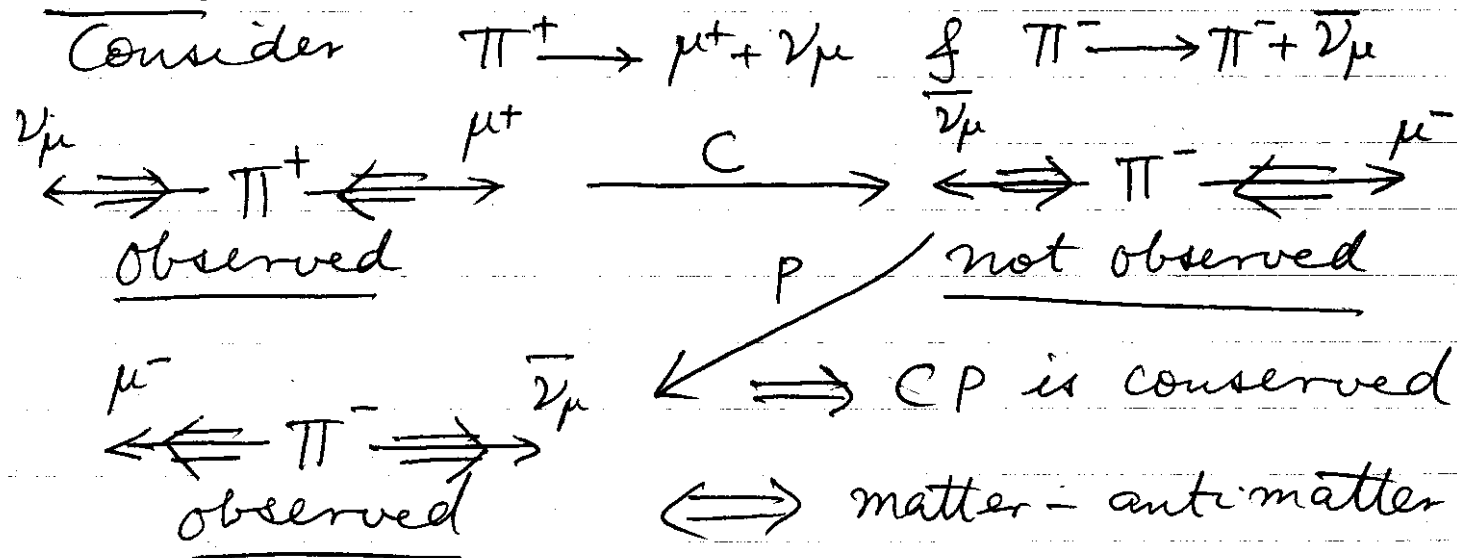 Consider π⁺ → μ⁺ + νμ & π⁻ → π⁻ + ν̄μ
νμ ⇒ π⁺ ⇐ μ⁺ C → ν̄μ ⇒ π⁻ ⇐ μ⁻
observed P not observed
μ⁻ ⇐ π⁻ ⇒ ν̄μ ⇒ CP is conserved
observed ⇔ matter - antimatter